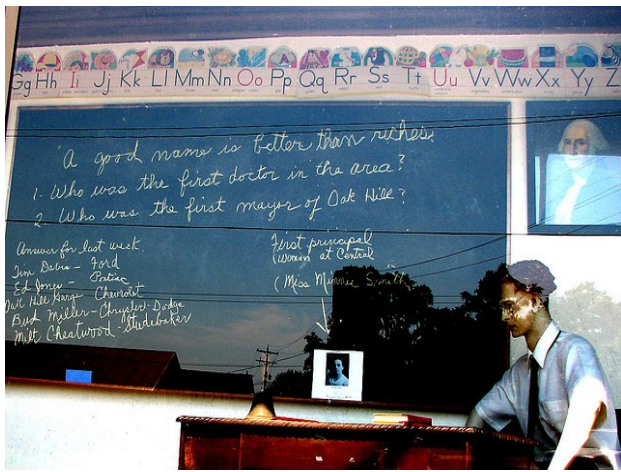 Gg Hh Ii Jj Kk Ll Mm Nn Oo Pp Qq Rr Ss Tt Uu Vv Ww Xx Yy Z
"A good name is better than riches.
1. Who was the first doctor in the area?
2. Who was the first mayor of Oak Hill?
Answer for last week.
Tim Davis - Ford
Ed Jones - Pontiac
Oak Hill Garage - Chevrolet
Bud Miller - Chrysler - Dodge
Milt Cheatwood - Studebaker
First principal
(Woman at Central
(Miss Minnie Smith